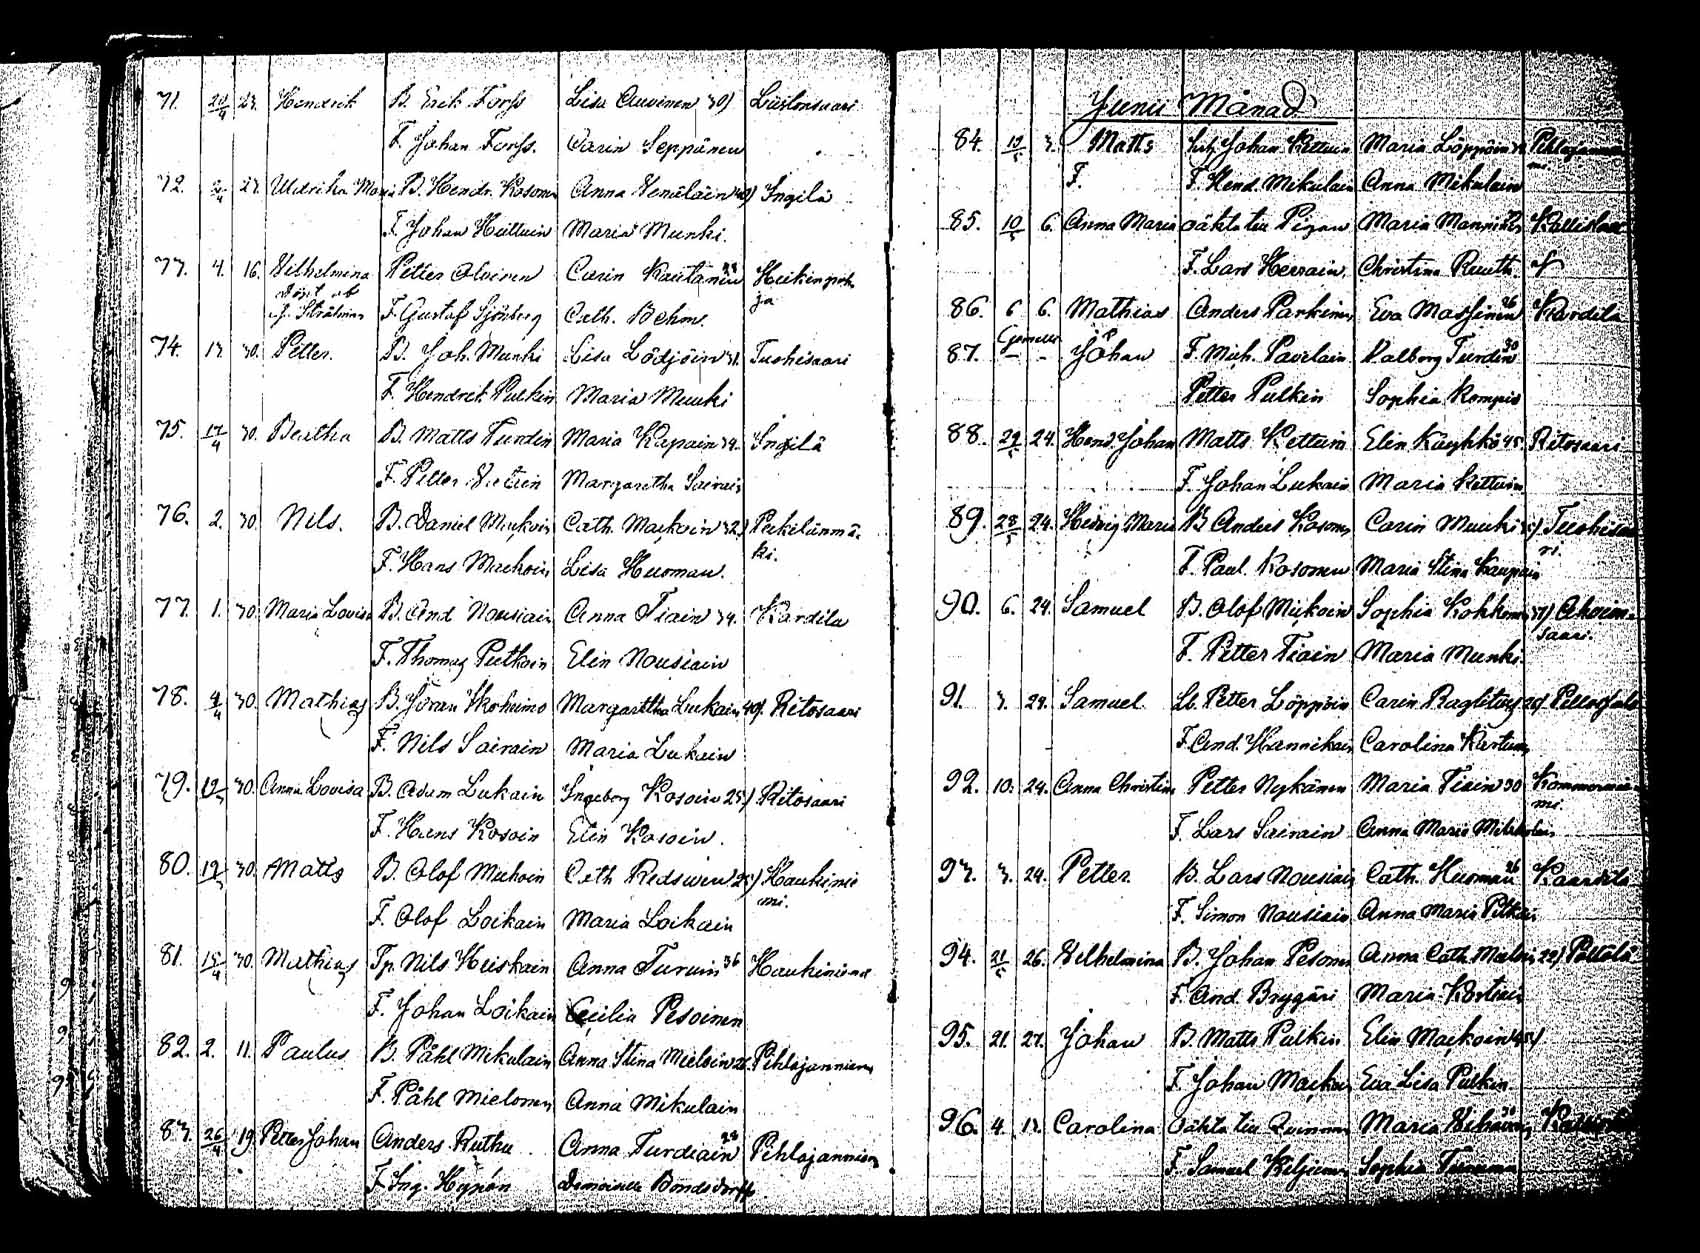 71. 20/4 23. Hendrik B. Erik Forss Lisa Auvinen 30) Liistonsaari
F. Johan Forss. Carin Seppänen
72. 27. Uldrika Maria B. Hendr. Kosonen Anna Venäläin 40) Ingilä
F. Johan Hüttuin Maria Munki.
73. 4. 16. Vilhelmina Petter Olvinen Carin Rautanen 28 Heikinpoh
döpt af ja
F. Gustaf Sjöberg Cath. Behm.
74. 13. 30. Petter. B. Joh. Munki Lisa Lödjöin 31. Tuohisaari
F. Hendrik Pulkin Maria Munki
75. 17/4 30. Beatha B. Matts Turdin Maria Kapain 34. Ingilä
F. Petter Margaretha Sairain
76. 2. 30. Nils. B. Daniel Muikoin Cath. Maikoin 32) Perkelänmä-
F. Hans Muikoin Lisa Huoman. ki.
77. 1. 30. Maria Lovisa B. And Nousiain Anna Tiain 34. Kardila
F. Thomas Putkain Elin Nousiain
78. 4/4 30. Mathias B. Jöran Ikoheimo Margarttha Lukain 40). Ritosaari
F. Nils Sairain Maria Lukain
79. 30. Anna Lovisa B. Adam Lukain Ingeborg Kosoin 25) Ritosaari
F. Hans Kosoin Elin Kosoin.
80. 30. Matts B. Olof Muhoin Cath Redswen Haukinie
F. Olof Loikain Maria Loikain mi.
81. 15/4 30. Mathias Tp. Nils Heiskain Anna Turuin 36 Haukiniema
F. Johan Loikain Cecilia Pesoinen
82. 2. 11. Paulus B. Påhl Mikulain Anna Stina Mieloin 26. Pihlajanniem
F. Påhl Mielonen Anna Mikulain
83. 26/4 19 Petter Johan Anders Ruthu Anna Turdiain 28 Pihlajanniem
F. Ing. Hynén Demoiselle Bondsdorff
Junii Månad
84. 3. Matts Johan Kettuin Maria Löppöin Pihlajannie
F. F. Hend. Mikulain Anna Mikulain mi.
85. 10/5 6. Anna Maria oäkta tiu Pigan Maria Manninen Kallislax
F. Lars Herrain. Christina Ruuth.
86. 6 6. Mathias Anders Parkinen Eva Massinen 26 Kardila
Gemeller
87. – – Johan F. Mich. Pavilain Valborg Turdin 30
Petter Pulkin Sophia Kompin
88. 29/5 24. Hend. Johan Matts Kettuin Elin Käyhkö 45. Ritosaari
F. Johan Lukain Maria Kettuin
89. 23/5 24. Hedvig Maria B Anders Kosonen Carin Munki Tuohisaa
F. Paul. Kosonen Maria Stina Kaupein ri.
90. 6. 24. Samuel B. Olof Muikoin Sophia Kokkonen 37) Ahvion-
F. Petter Tiain Maria Munki. saari.
91. 3. 24. Samuel Petter Löppöin Carin
F. And. Hannikain Carolina
92. 10. 24. Anna Christina Petter Nykänen Maria Tiain 30 Kommernie-
F. Lars Sairain Anna Maria mi.
93. 3. 24. Petter B. Lars Nousiain Cath. Huoman 26 Kaardila
F. Simon Nousiain Anna Maria Pitkain
94. 21/5 26. Vilhelmina B. Johan Pesonen Anna Cath. Mieloin 22) Pättälä
F. And. Bryggäri Maria Kortiain
95. 21. 27. Johan B. Matts Pulkin Elin Maikoin 45)
F. Johan Maikoin Eva Lisa Pulkin.
96. 4. 13. Carolina Oäkta tiu Quinnan Maria
F. Samuel Sophia